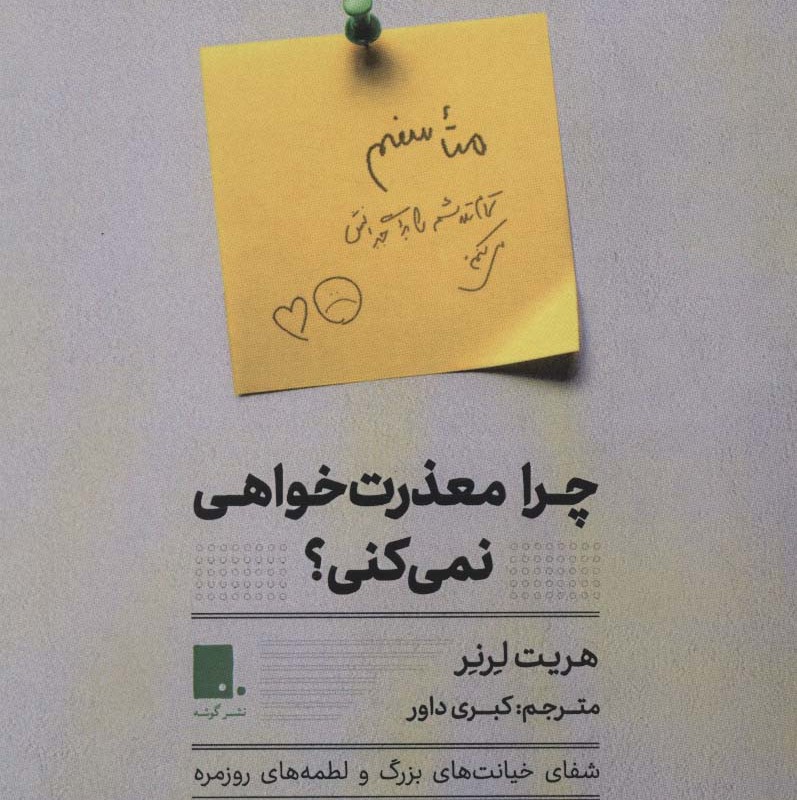 متأسفم
تمام تلاشم را برای جبرانش
می‌کنم
چرا معذرت‌خواهی
نمی‌کنی؟
هریت لِرنِر
مترجم: کبری داور
نشر گوشه
شفای خیانت‌های بزرگ و لطمه‌های روزمره